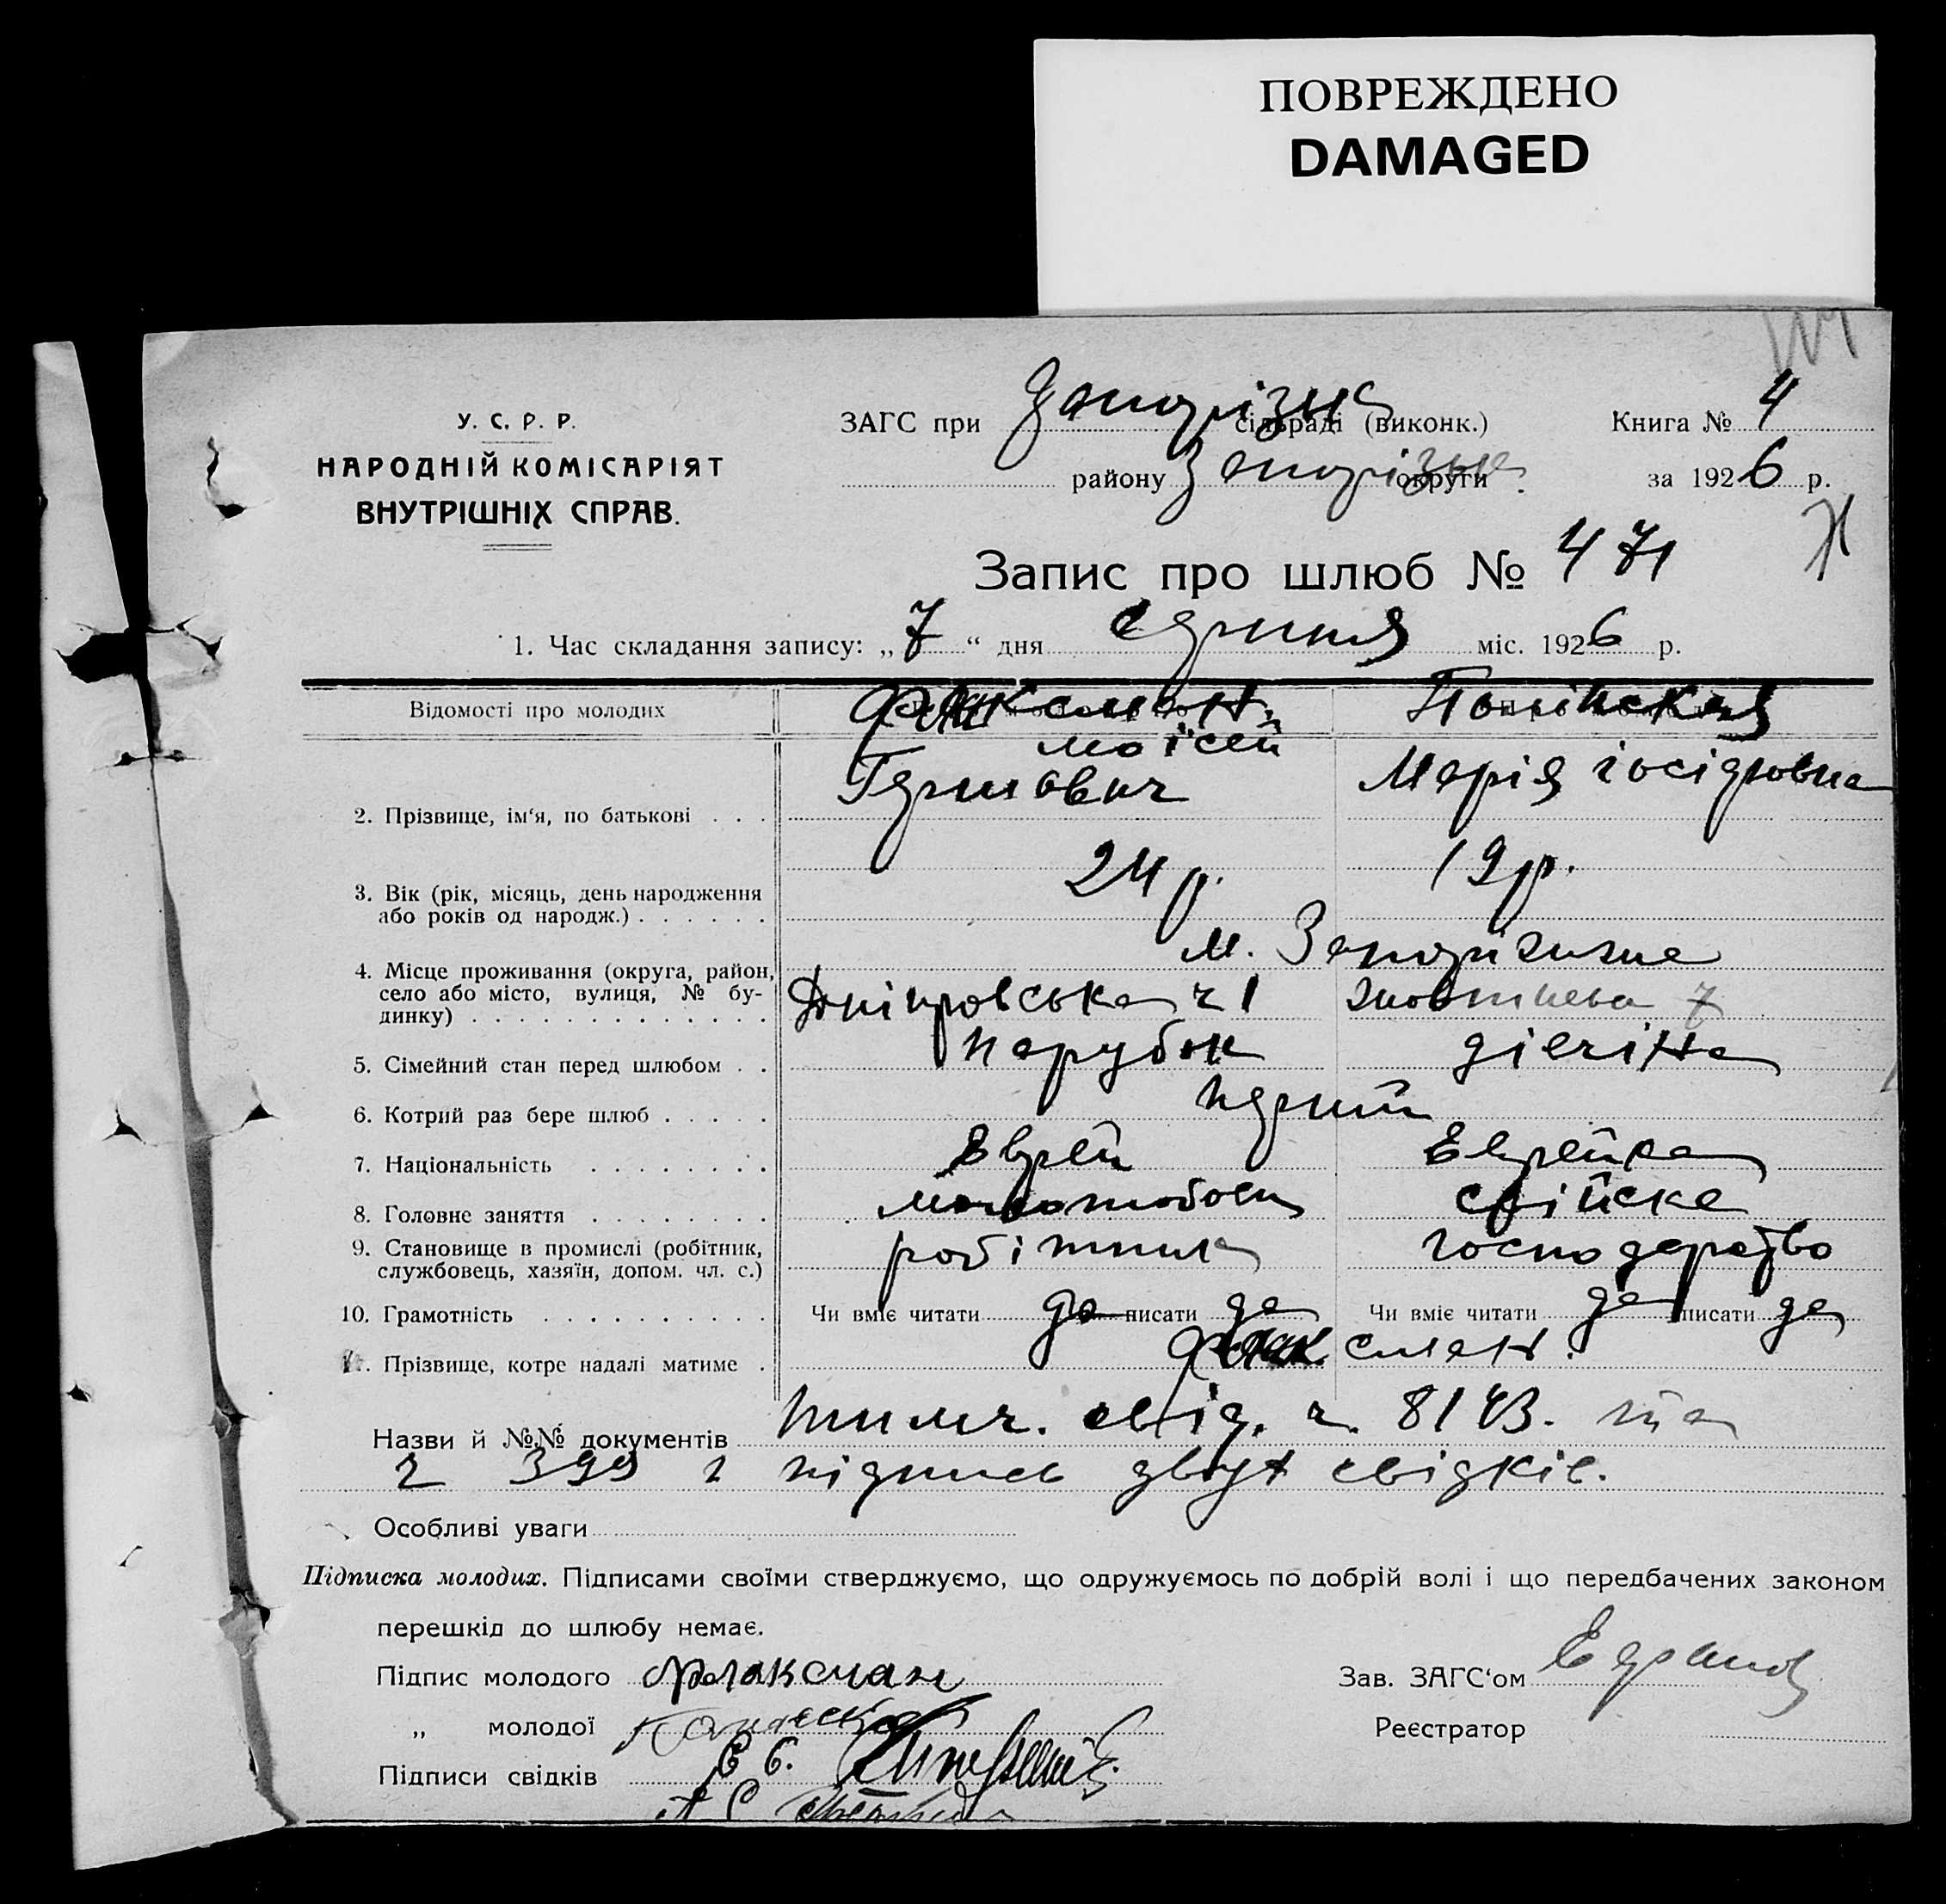 ПОВРЕЖДЕНО
DAMAGED
У. С. Р. Р.
НАРОДНІЙ КОМІСАРІЯТ
ВНУТРІШНІХ СПРАВ.
ЗАГС при Запорізьк сільраді (виконк.) Книга № 4
району Запорізьк округи за 1926 р.
Запис про шлюб № 471
1. Час складання запису: „7“ дня серпня міс. 1926 р.
Відомості про молодих
Мойсей
Гершович Марія Іосіфовна
2. Прізвище, ім‘я, по батькові . . .
24 р. 19 р.
3. Вік (рік, місяць, день народження
або років од народж.) . . . . . .
м. Запоріжжє
4. Місце проживання (округа, район,
село або місто, вулиця, № бу-
динку) . . . . . . . . . . . . . Дніпровська ч 1 Жовтнева 7
5. Сімейний стан перед шлюбом . . Парубок дівчіна
6. Котрий раз бере шлюб . . . . . перший
7. Національність . . . . . . . . Еврей Еврейка
8. Головне заняття . . . . . . . . молотобоец сімйске
9. Становище в промислі (робітник,
службовець, хазяїн, допом. чл. с.) робітник господарство
10. Грамотність . . . . . . . . . . Чи вміє читати да писати да Чи вміє читати да писати да
Прізвище, котре надалі матиме . Флаксман.
Назви й №№ документів тимч. свід. ч. 8143. та
ч 399 і підпись двух свідків.
Особливі уваги
Підписка молодих. Підписами своїми стверджуємо, що одружуємось по добрій волі і що передбачених законом
перешкід до шлюбу немає.
Підпис молодого Флаксман Зав. ЗАГС‘ом
„ молодої Реєстратор
Підписи свідків